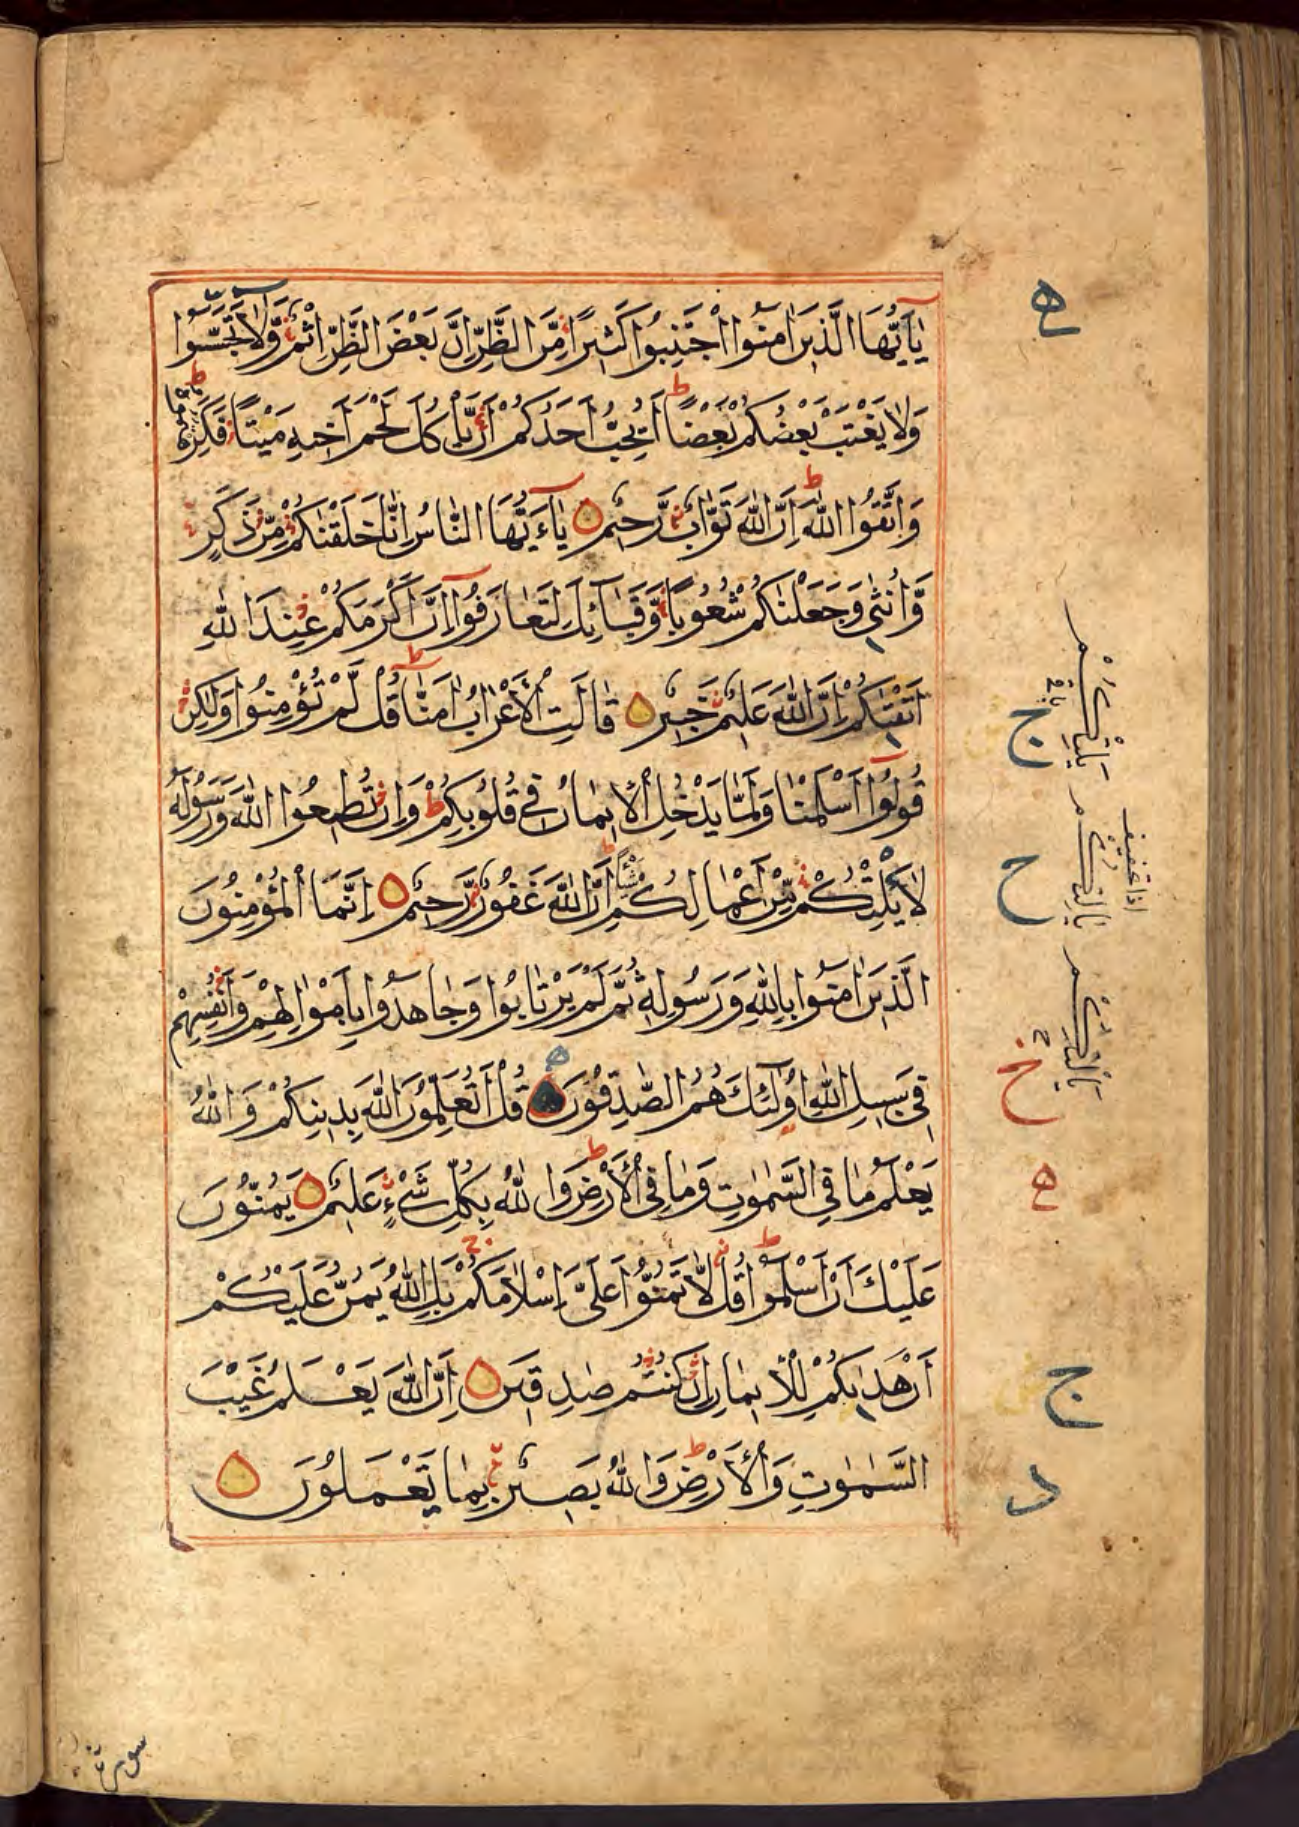 يٰٓاَيُّهَا الَّذِينَ اٰمَنُوا اجْتَنِبُوا كَثِيرًا مِّنَ الظَّنِّ اِنَّ بَعْضَ الظَّنِّ اِثْمٌ وَّلَا تَجَسَّسُوا
وَلَا يَغْتَبْ بَعْضُكُمْ بَعْضًا اَيُحِبُّ اَحَدُكُمْ اَنْ يَّاْكُلَ لَحْمَ اَخِيهِ مَيْتًا فَكَرِهْتُمُوهُ
وَاتَّقُوا اللّٰهَ اِنَّ اللّٰهَ تَوَّابٌ رَّحِيمٌ يٰٓاَيُّهَا النَّاسُ اِنَّا خَلَقْنٰكُمْ مِّنْ ذَكَرٍ
وَّاُنْثٰى وَجَعَلْنٰكُمْ شُعُوبًا وَّقَبَآئِلَ لِتَعَارَفُوا اِنَّ اَكْرَمَكُمْ عِنْدَ اللّٰهِ
اَتْقٰىكُمْ اِنَّ اللّٰهَ عَلِيمٌ خَبِيرٌ قَالَتِ الْاَعْرَابُ اٰمَنَّا قُلْ لَّمْ تُؤْمِنُوا وَلٰكِنْ
قُولُوٓا اَسْلَمْنَا وَلَمَّا يَدْخُلِ الْاِيمَانُ فِي قُلُوبِكُمْ وَاِنْ تُطِيعُوا اللّٰهَ وَرَسُولَهُ
لَا يَلِتْكُمْ مِّنْ اَعْمَالِكُمْ شَيْـًٔا اِنَّ اللّٰهَ غَفُورٌ رَّحِيمٌ اِنَّمَا الْمُؤْمِنُونَ
الَّذِينَ اٰمَنُوا بِاللّٰهِ وَرَسُولِهِ ثُمَّ لَمْ يَرْتَابُوا وَجَاهَدُوا بِاَمْوَالِهِمْ وَاَنْفُسِهِمْ
فِي سَبِيلِ اللّٰهِ اُولٰٓئِكَ هُمُ الصّٰدِقُونَ قُلْ اَتُعَلِّمُونَ اللّٰهَ بِدِينِكُمْ وَاللّٰهُ
يَعْلَمُ مَا فِي السَّمٰوٰتِ وَمَا فِي الْاَرْضِ وَاللّٰهُ بِكُلِّ شَيْءٍ عَلِيمٌ يَمُنُّونَ
عَلَيْكَ اَنْ اَسْلَمُوا قُلْ لَّا تَمُنُّوا عَلَيَّ اِسْلَامَكُمْ بَلِ اللّٰهُ يَمُنُّ عَلَيْكُمْ
اَنْ هَدٰىكُمْ لِلْاِيمَانِ اِنْ كُنْتُمْ صٰدِقِينَ اِنَّ اللّٰهَ يَعْلَمُ غَيْبَ
السَّمٰوٰتِ وَالْاَرْضِ وَاللّٰهُ بَصِيرٌ بِمَا تَعْمَلُونَ
ج
ح
خ
ج
د